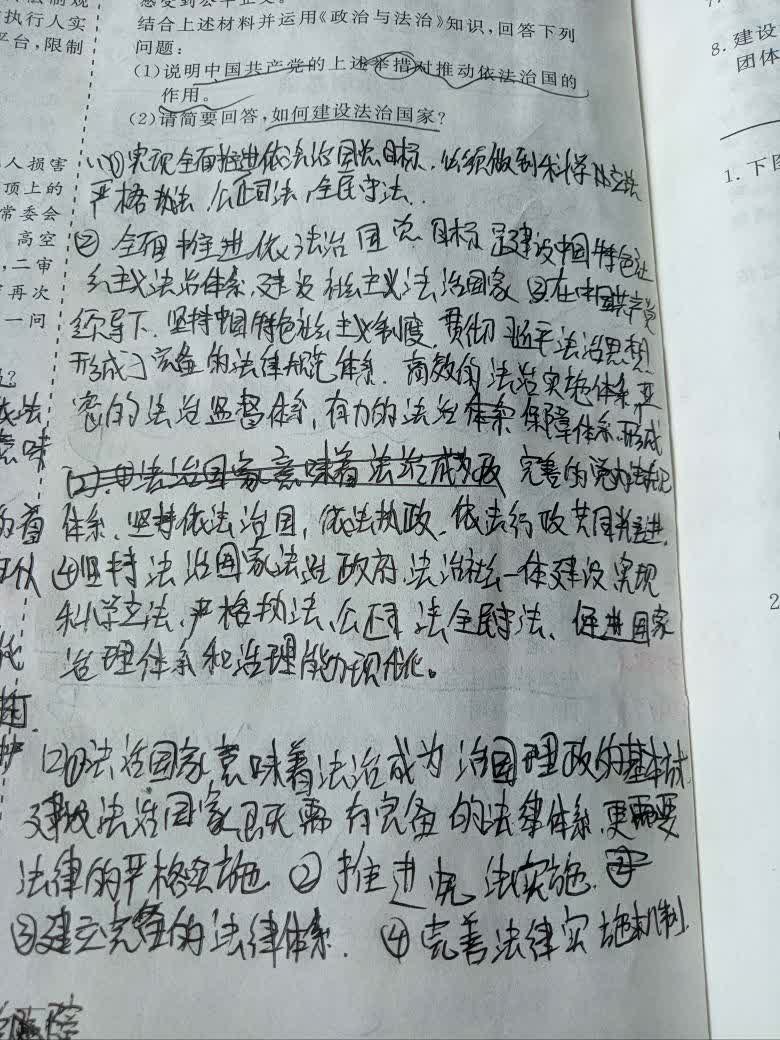 执行人实
平台,限制
结合上述材料并运用《政治与法治》知识,回答下列
问题:
(1)说明中国共产党的上述举措对推动依法治国的
作用。
(2)请简要回答,如何建设法治国家?
人损害
顶上的
常委会
高空
,二审
再次
一问
8. 建设
团体
1. 下
(1)①实现全面推进依法治国总目标,必须做到科学立法
严格执法 公正司法,全民守法.
② 全面推进依法治国总目标是建设中国特色社
会主义法治体系,建设社会主义法治国家 ③在中国共产党
领导下.坚持中国特色社会主义制度,贯彻习近平法治思想
形成了完备的法律规范体系.高效的法治实施体系,严
密的法治监督体系,有力的法治体系保障体系,形成
(2).①法治国家意味着法治成为政 完善的党内法规
体系.坚持依法治国,依法执政.依法行政共同推进.
④坚持法治国家法治政府.法治社会一体建设 实现
科学立法.严格执法、公正司法全民守法、促进国家
治理体系和治理能力现代化。
(2)①法治国家意味着法治成为治国理政的基本方式
建设法治国家既需有完备的法律体系.更需要
法律的严格实施 ②推进宪法实施.
③建立完备的法律体系. ④完善法律实施机制.